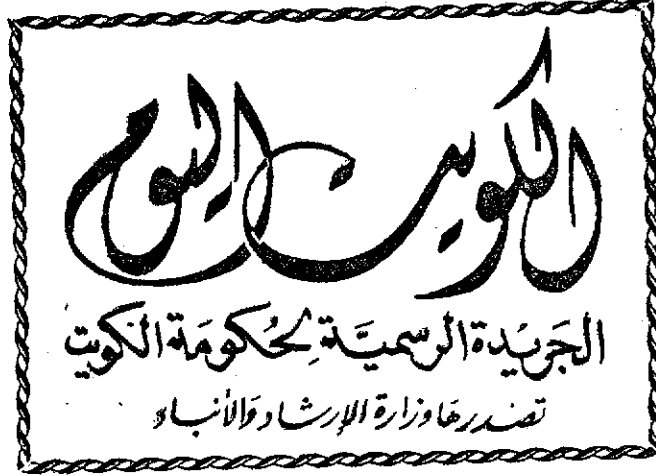 الكويت اليوم
الجريدة الرسميَّة لحُكومَة الكويت
تصدرها وزارة الإرشاد والأنباء